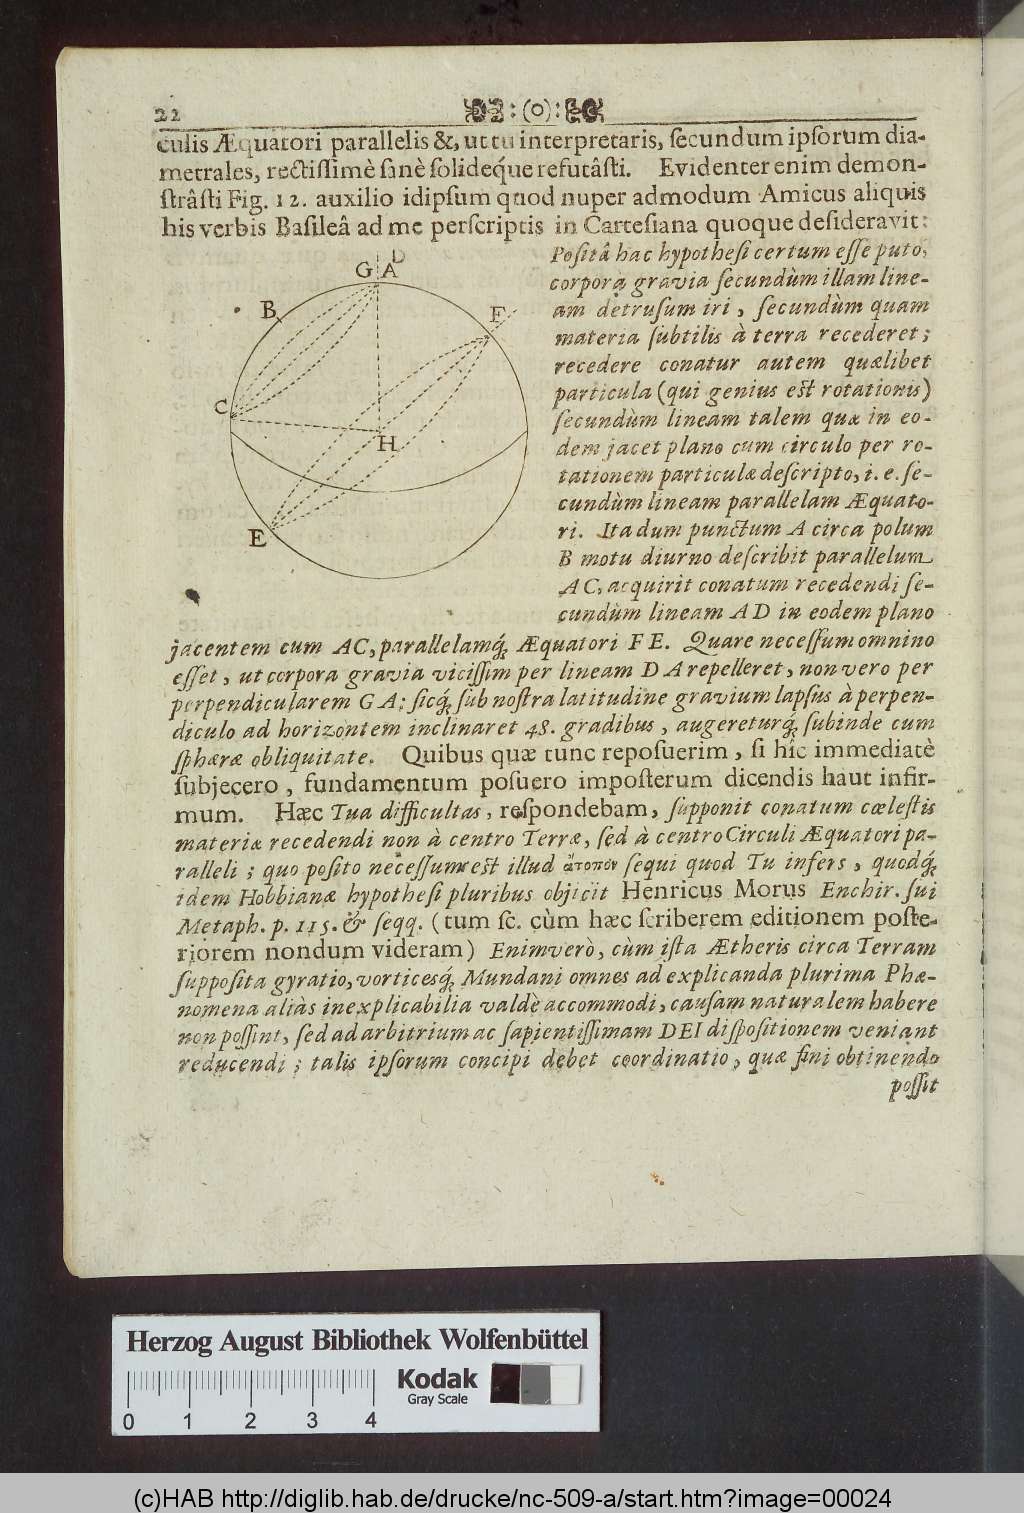 22 :(o):
culis Æquatori parallelis &, ut tu interpretaris, ſecundum ipſorum dia-
metrales, rectiſſimè ſanè ſolideq́ue refutâſti. Evidenter enim demon-
ſtrâſti Fig. 12. auxilio idipſum quod nuper admodum Amicus aliquis
his verbis Baſileâ ad me perſcriptis in Carteſiana quoque deſideravit:
Poſitâ hac hypotheſi certum eſſe puto,
corpora gravia ſecundùm illam line-
am detruſum iri, ſecundùm quam
materia ſubtilis à terra recederet;
recedere conatur autem quælibet
particula (qui genius eſt rotationis)
ſecundùm lineam talem quæ in eo-
dem jacet plano cum circulo per ro-
tationem particulæ deſcripto, i. e. ſe-
cundùm lineam parallelam Æquato-
ri. Ita dum punctum A circa polum
B motu diurno deſcribit parallelum
AC, acquirit conatum recedendi ſe-
cundùm lineam AD in eodem plano
jacentem cum AC, parallelamq́; Æquatori FE. Quare neceſſum omnino
eſſet, ut corpora gravia viciſſim per lineam DA repelleret, non vero per
perpendicularem GA; ſicq́; ſub noſtra latitudine gravium lapſus à perpen-
diculo ad horizontem inclinaret 48. gradibus, augereturq́; ſubinde cum
ſphæræ obliquitate. Quibus quæ tunc repoſuerim, ſi hîc immediatè
ſubjecero, fundamentum poſuero impoſterum dicendis haut infir-
mum. Hæc Tua difficultas, reſpondebam, ſupponit conatum cœleſtis
materiæ recedendi non à centro Terræ, ſed à centro Circuli Æquatori pa-
ralleli; quo poſito neceſſum eſt illud ἄτοπον ſequi quod Tu infers, quodq́;
idem Hobbianæ hypotheſi pluribus objicit Henricus Morus Enchir. ſui
Metaph. p. 115. & ſeqq. (tum ſc. cùm hæc ſcriberem editionem poſte-
riorem nondum videram) Enimverò, cùm iſta Ætheris circa Terram
ſuppoſita gyratio, vorticesq́; Mundani omnes ad explicanda plurima Phæ-
nomena aliàs inexplicabilia valdè accommodi, cauſam naturalem habere
non poſſint, ſed ad arbitrium ac ſapientiſſimam DEI diſpoſitionem veniant
reducendi; talis ipſorum concipi debet coordinatio, quæ fini obtinendo
poſſit
G A D
B
F
C
H
E
Herzog August Bibliothek Wolfenbüttel
Kodak
Gray Scale
0 1 2 3 4
(c)HAB http://diglib.hab.de/drucke/nc-509-a/start.htm?image=00024